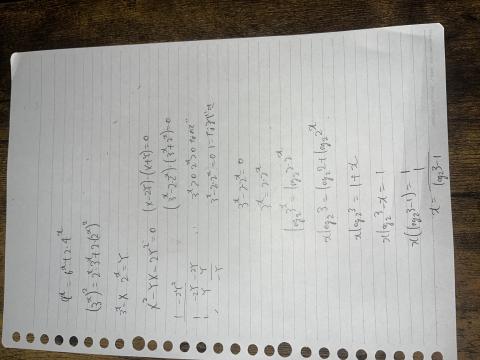 9^x = 6^x + 2·4^x
(3^x)^2 = 2^x·3^x + 2·(2^x)^2
3^x = X 2^x = Y
X^2 - YX - 2Y^2 = 0 (X-2Y)·(X+Y) = 0
1 -2Y^2 (3^x-2·2^x)·(3^x+2^x) = 0
1 -2Y -2Y 3^x > 0 2^x > 0
1 Y Y 3^x - 2·2^x = 0
-Y
3^x - 2·2^x = 0
3^x = 2·2^x
log_2 3^x = log_2 2·2^x
x log_2 3 = log_2 2 + log_2 2^x
x log_2 3 = 1 + x
x log_2 3 - x = 1
x(log_2 3 - 1) = 1
x = 1/(log_2 3 - 1)